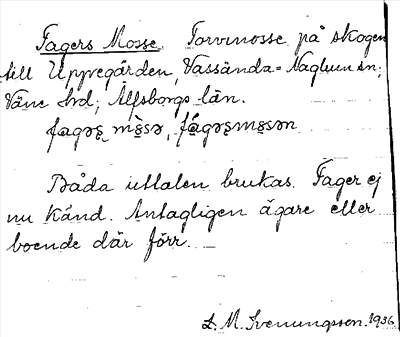 Fagers Mosse. Torvmosse på skogen
till Uppvegården, Vassända-Naglum sn;
Väne hd; Älfsborgs län.
fagəʂ mòsə, fágəʂmosən
Båda uttalen brukas. Fager ej
nu känd. Antagligen ägare eller
boende där förr.
L. M. Svenungsson. 1936